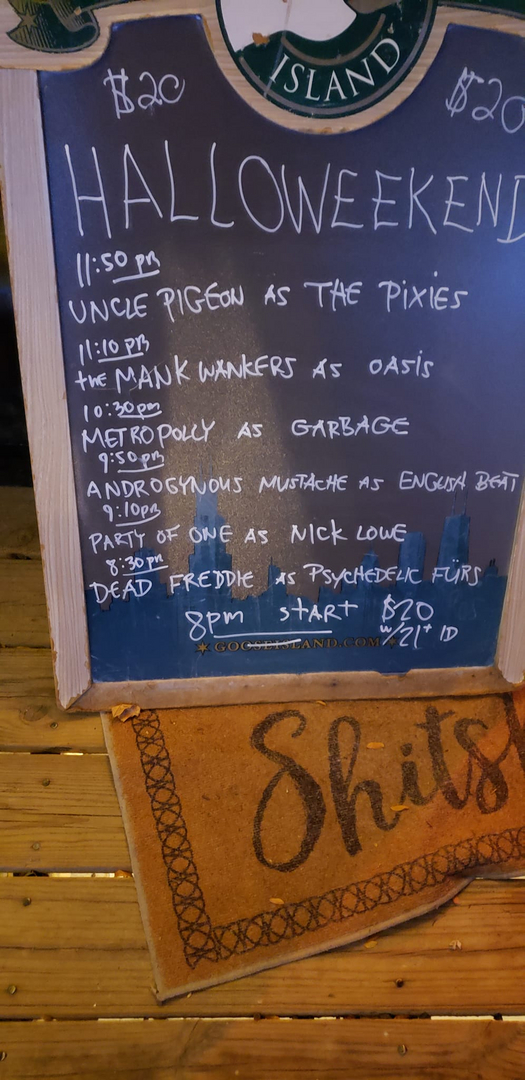 ISLAND
$20 $20
HALLOWEEKEND
11:50 pm
UNCLE PIGEON AS THE PiXiES
11:10 pm
the MANK WANKERS AS OASiS
10:30pm
METROPOLLY AS GARBAGE
9:50pm
ANDROGYNOUS MUSTACHE AS ENGLISH BEAT
9:10pm
PARTY OF ONE AS NiCK LOWE
8:30 pm
DEAD FREDDIE AS PSYCHEDELIC FÜRS
8pm StARt $20
w/21+ ID
GOOSEISLAND.COM
Shits